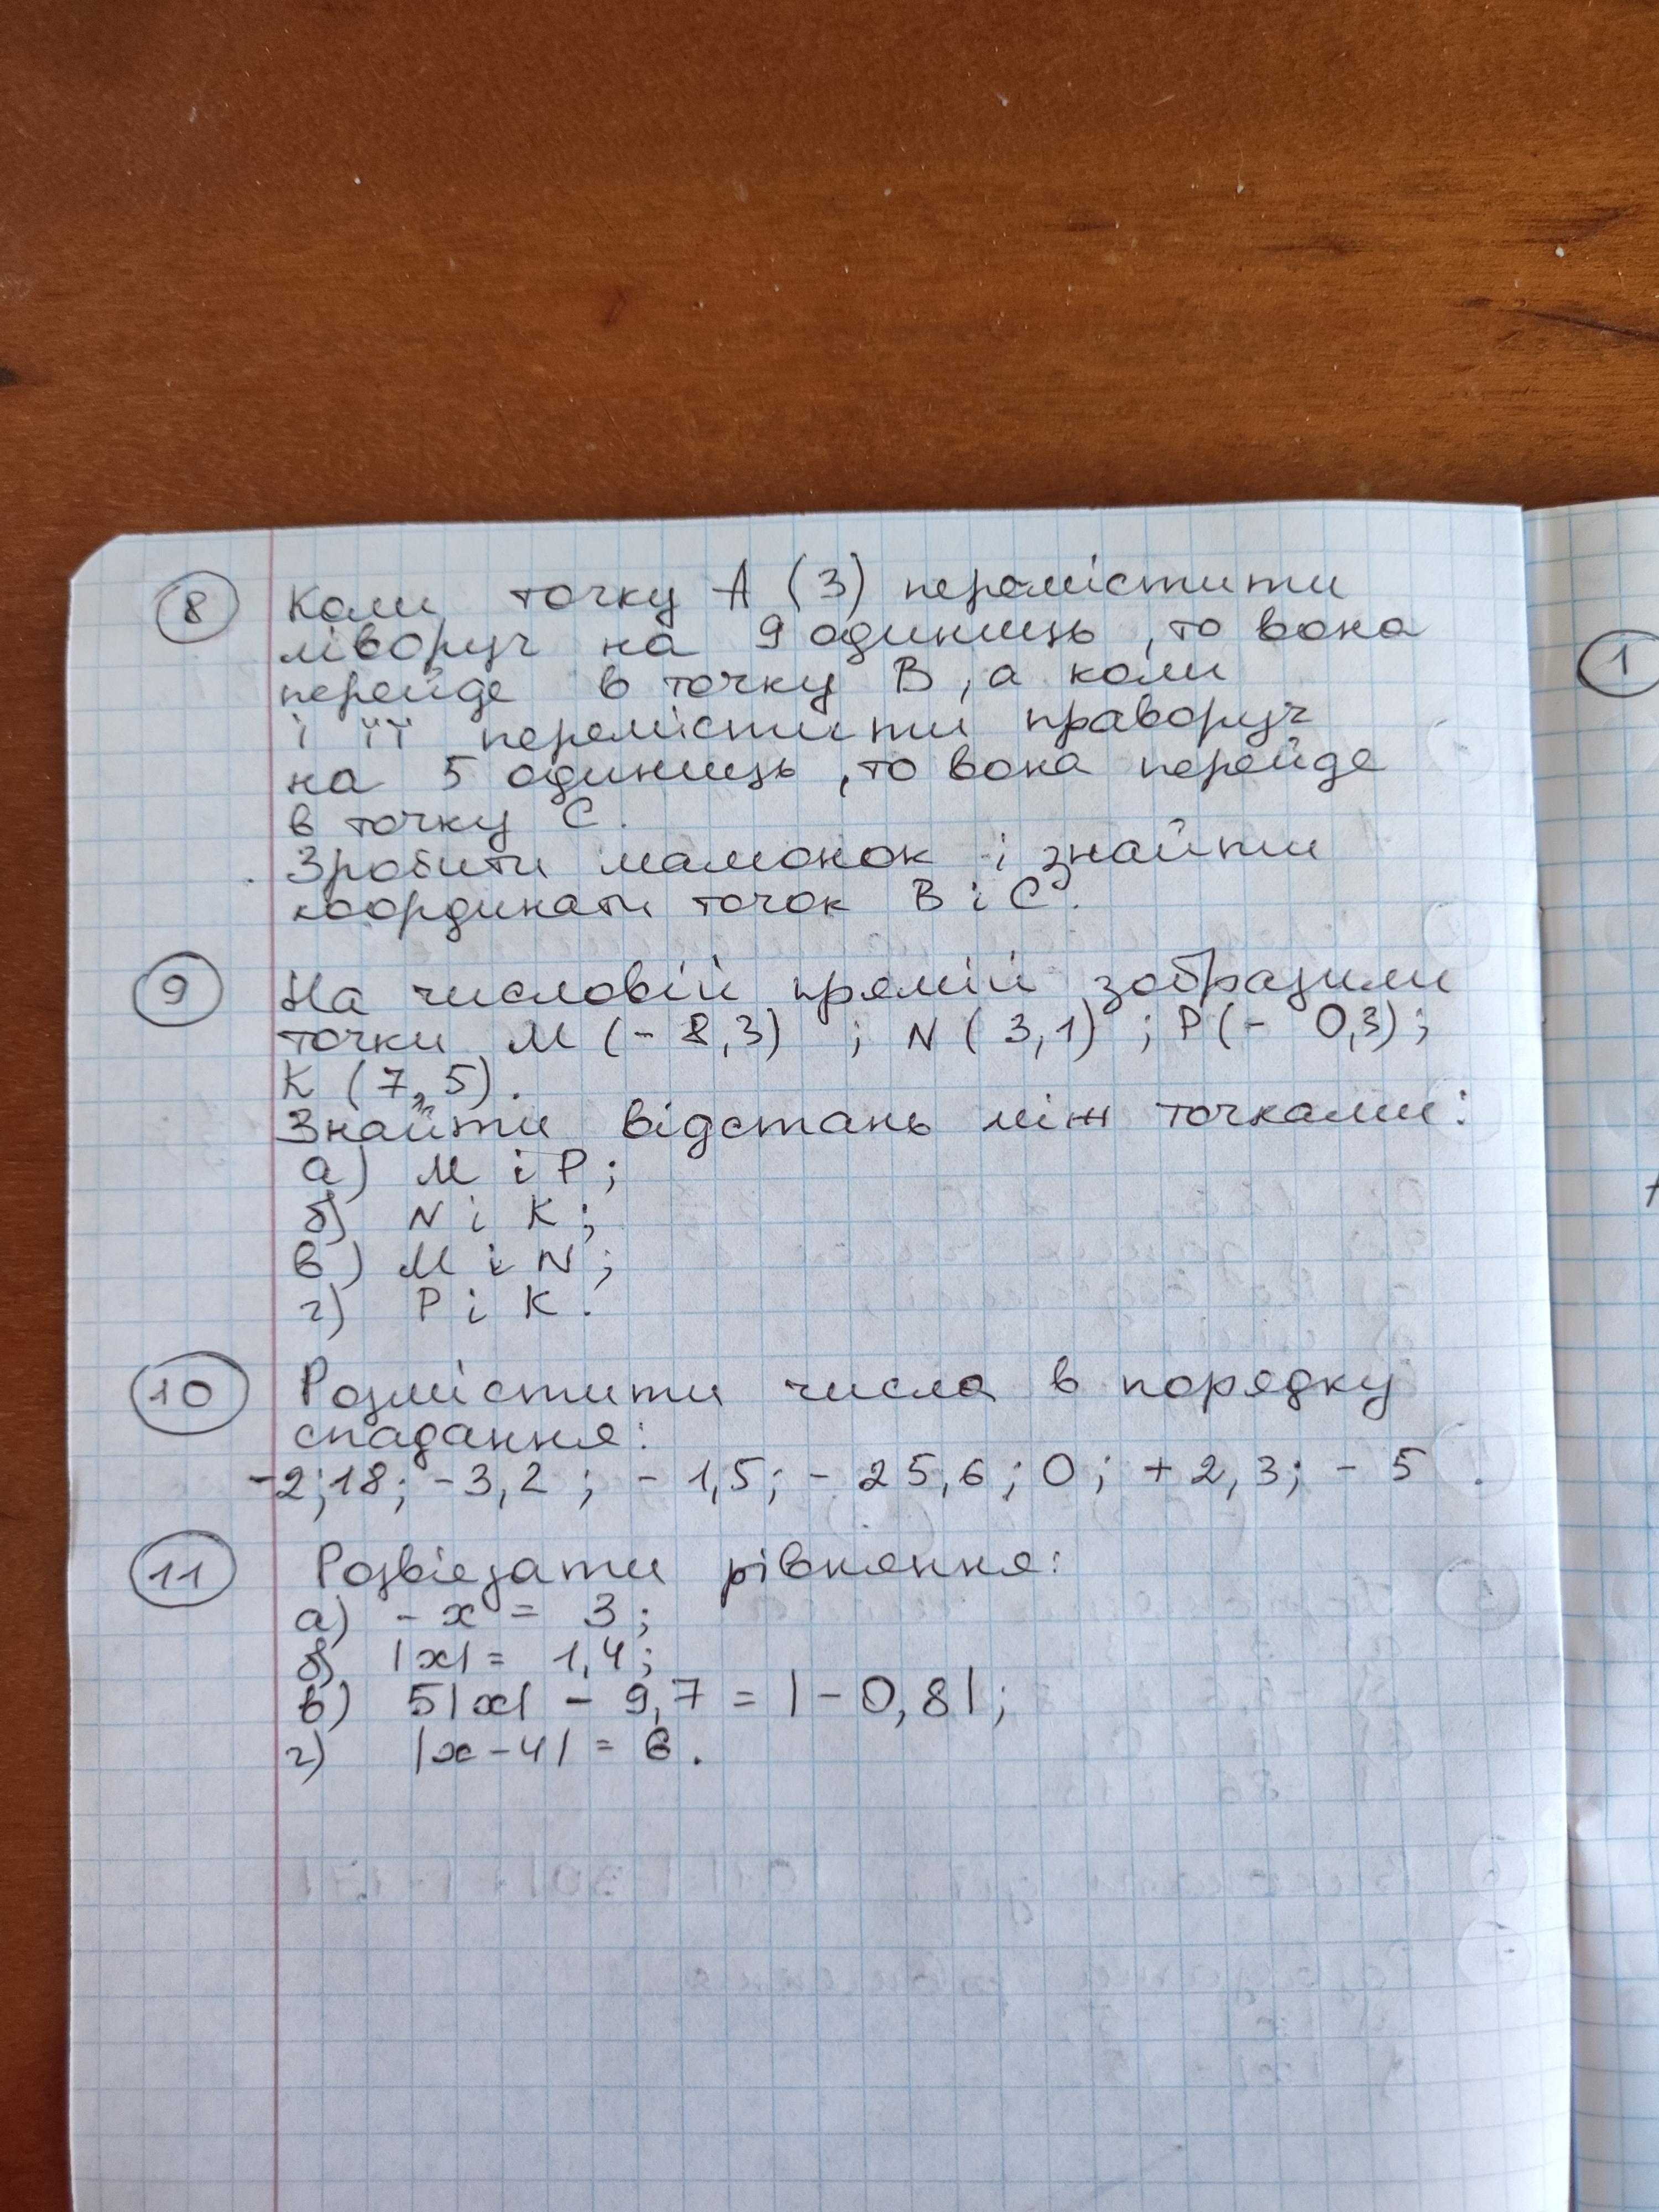 8 Коли точку А (3) перемістити
ліворуч на 9 одиниць, то вона
перейде в точку В, а коли
і її перемістити праворуч
на 5 одиниць, то вона перейде
в точку С.
Зробити малюнок і знайти
координати точок В і С.
9 На числовій прямій зобразили
точки М (- 8,3) ; N ( 3,1) ; Р (- 0,3) ;
К (7,5).
Знайти відстань між точками:
а) М і Р;
б) N і К;
в) М і N;
г) Р і К.
10 Розмістити числа в порядку
спадання:
-2; 18; -3,2 ; - 1,5; - 25,6; 0; + 2,3; - 5 .
11 Розвієзати рівняння:
а) - х = 3;
б) |х| = 1,4;
в) 5|х| - 9,7 = |- 0,8|;
г) |х - 4| = 6.
1